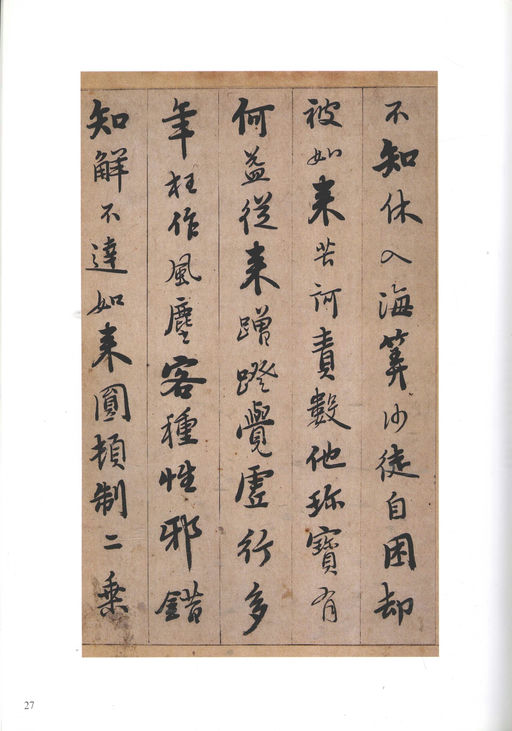 不知休入海筭沙徒自困却
被如来苦訶責數他珎寶有
何益從来蹭蹬覺虛行多
年枉作風塵客種性邪錯
知解不達如来圓頓制二乗
27